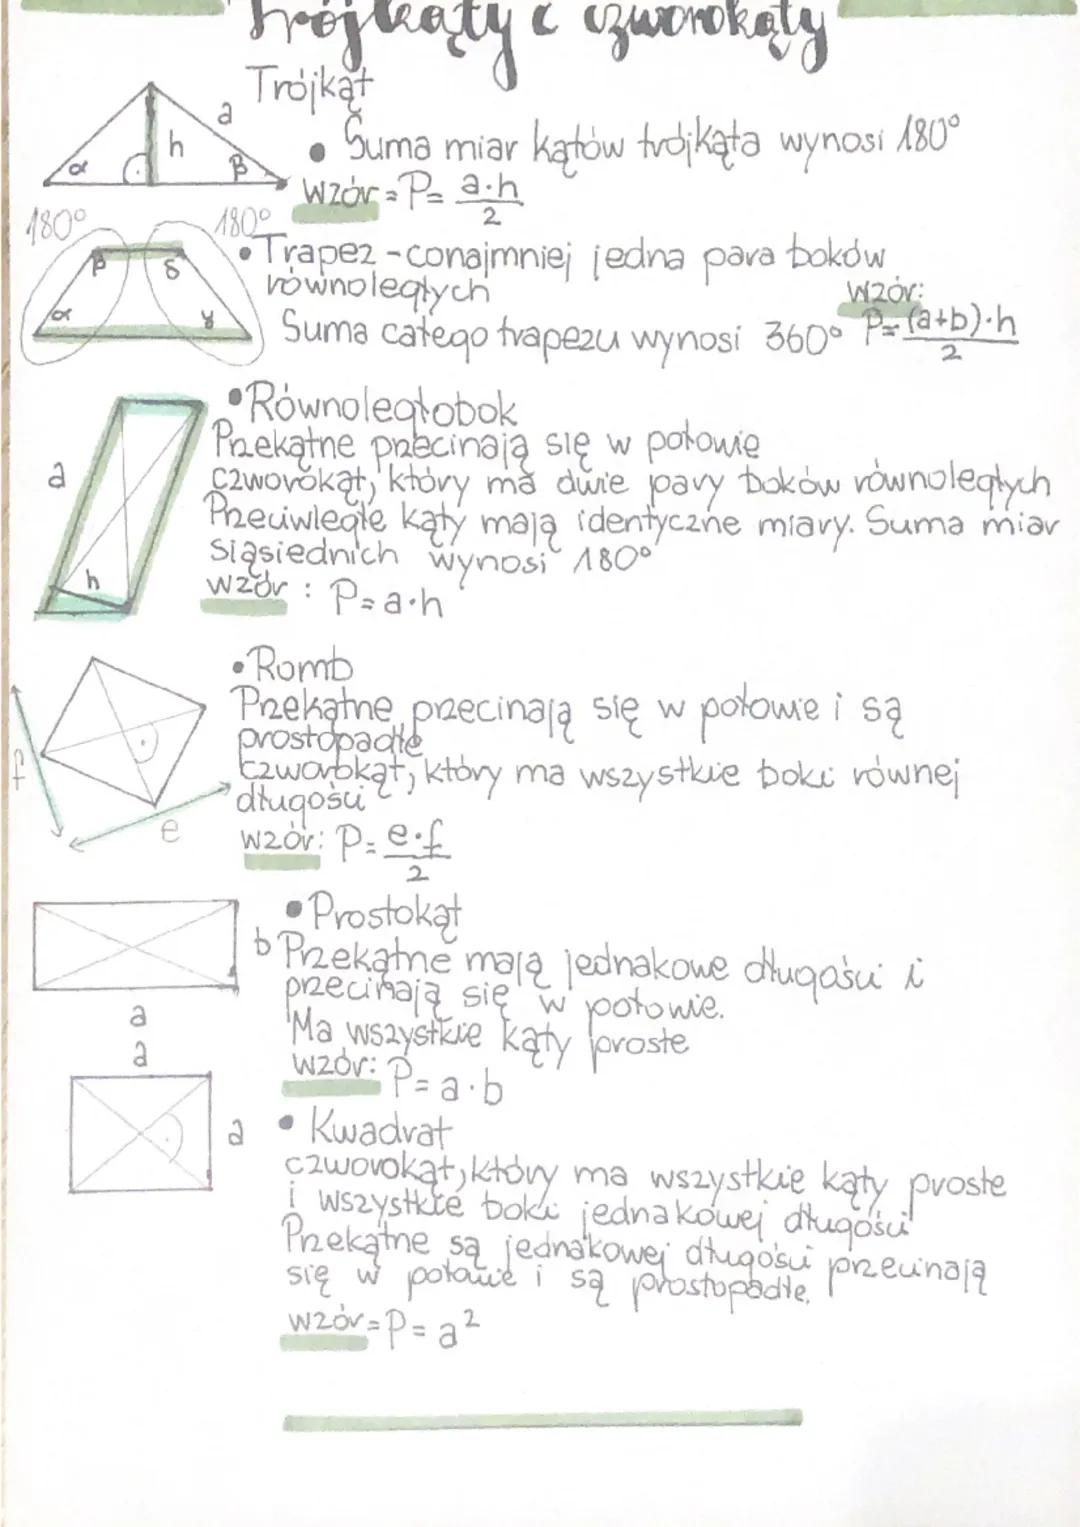 Trójkąty i czworokąty
Trójkąt
a
h
α
β
• Suma miar kątów trójkąta wynosi 180°
Wzór = P = a·h
2
180°
180°
β
δ
α
γ
• Trapez - conajmniej jedna para boków
równoległych
Wzór:
Suma całego trapezu wynosi 360° P = (a+b)·h
2
• Równoległobok
Przekątne przecinają się w połowie
a
czworokąt, który ma dwie pary boków równoległych
Przeciwległe kąty mają identyczne miary. Suma miar
siąsiednich wynosi 180°
h
wzór : P = a·h
• Romb
Przekątne przecinają się w połowie i są
prostopadłe
f
Czworokąt, który ma wszystkie boki równej
długości
e
wzór: P = e·f
2
• Prostokąt
b
Przekątne mają jednakowe długości i
przecinają się w połowie.
a
Ma wszystkie kąty proste
a
wzór: P = a·b
a
• Kwadrat
czworokąt, który ma wszystkie kąty proste
i wszystkie boki jednakowej długości
Przekątne są jednakowej długości przecinają
się w połowie i są prostopadłe.
wzór = P = a²